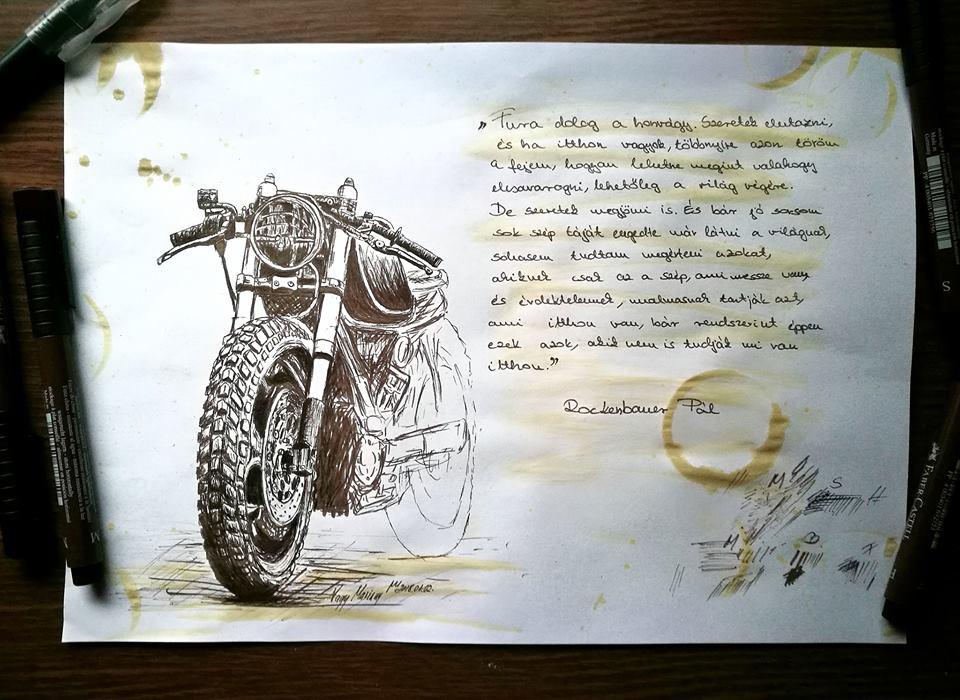 „Fura dolog a honvágy. Szeretek elutazni,
és ha itthon vagyok, többnyire azon töröm
a fejem, hogyan lehetne megint valahogy
elcsavarogni, lehetőleg a világ végére.
De szeretek megjönni is. És bár jó sorsom
sok szép táját engedte már látni a világnak,
sohasem tudtam megérteni azokat,
akiknek csak az a szép, ami messze van
és érdektelennek, unalmasnak tartják azt,
ami itthon van, bár rendszerint éppen
ezek azok, akik nem is tudják mi van
itthon.”
Rockenbauer Pál
M
S
H
M
B
F
FABER-CASTELL
S
M